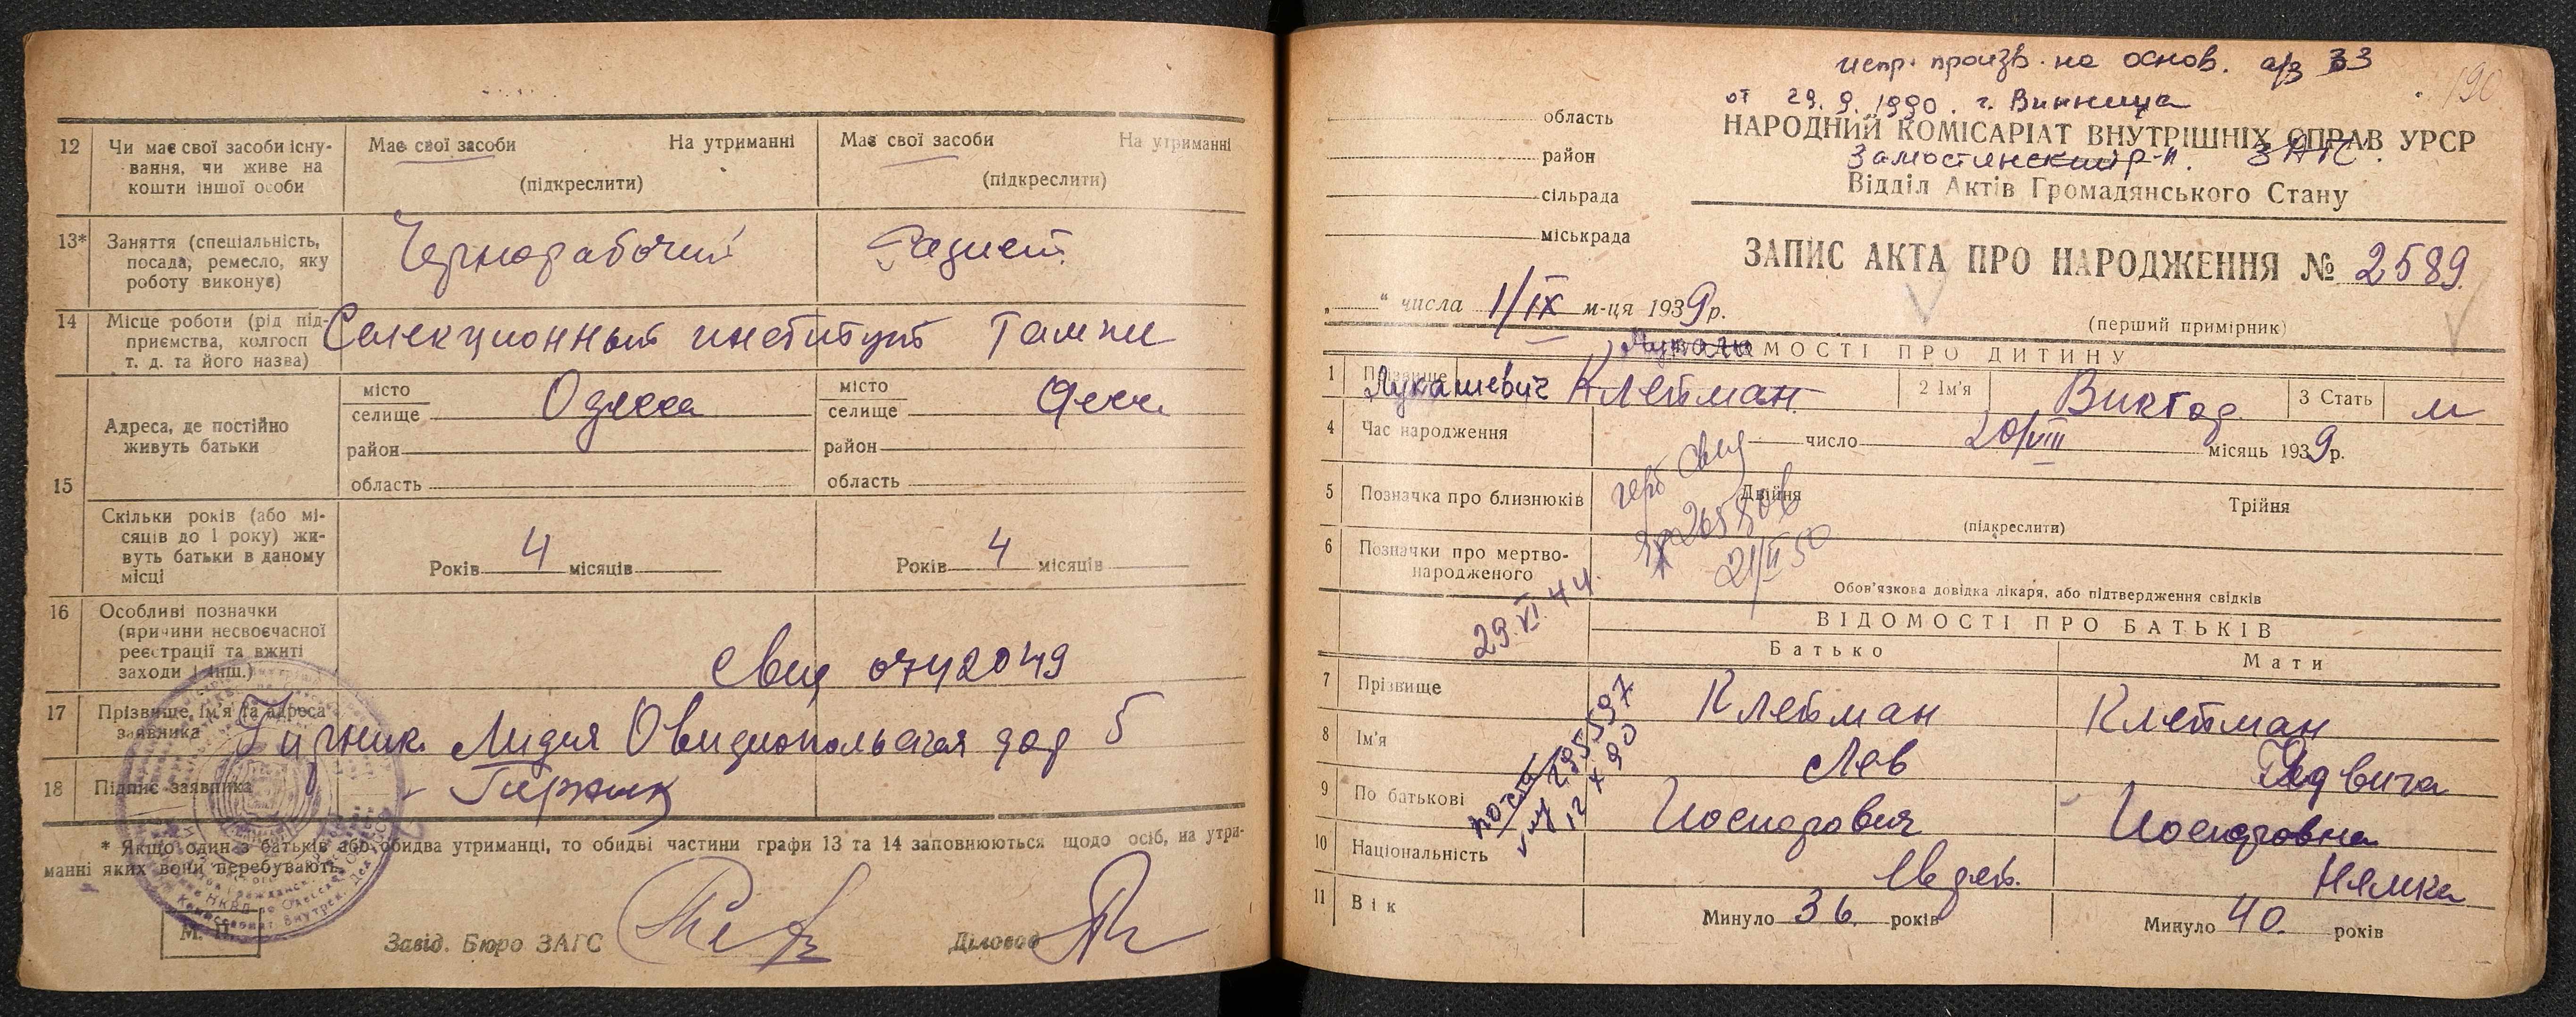 12 Чи має свої засоби існу-
вання, чи живе на
кошти іншої особи
Має свої засоби На утриманні
(підкреслити)
Має свої засоби На утриманні
(підкреслити)
13* Заняття (спеціальність,
посада, ремесло, яку
роботу виконує)
Чернорабочий
14 Місце роботи (рід під-
приємства, колгосп і
т. д. та його назва)
Селекционный институт
15 Адреса, де постійно
живуть батьки
місто
селище Одесса
район
область
місто
селище
район
область
Скільки років (або мі-
сяців до 1 року) жи-
вуть батьки в даному
місці
Років 4 місяців
Років 4 місяців
16 Особливі позначки
(причини несвоєчасної
реєстрації та вжиті
заходи і інш.)
Свид 0742049
17 Прізвище, ім'я та адреса
заявника
Лидия Овидиопольская дор 5
18 Підпис заявника
* Якщо один з батьків або обидва утриманці, то обидві частини графи 13 та 14 заповнюються щодо осіб, на утри-
манні яких вони перебувають.
М. П.
Завід. Бюро ЗАГС
Діловод
испр. произв. на основ. а/з 33
от 29. 9. 1990. г. Винница
190
НАРОДНИЙ КОМІСАРІАТ ВНУТРІШНІХ СПРАВ УРСР
Замостянский р-н. ЗАГС.
Відділ Актів Громадянського Стану
область
район
сільрада
міськрада
ЗАПИС АКТА ПРО НАРОДЖЕННЯ № 2589
„ “ числа 1/IX м-ця 1939р.
(перший примірник)
ВІДОМОСТІ ПРО ДИТИНУ
1 Прізвище Лукашевич Клейман 2 Ім'я Виктор 3 Стать м
4 Час народження число 20/VIII місяць 1939р.
5 Позначка про близнюків Двійня Трійня
(підкреслити)
21/II 50
6 Позначки про мертво-
народженого
Обов'язкова довідка лікаря, або підтвердження свідків
29.VI.44.
ВІДОМОСТІ ПРО БАТЬКІВ
Батько Мати
7 Прізвище Клейман Клейман
8 Ім'я Лев Ядвига
9 По батькові Иосифович Иосифовна
10 Національність Еврей. Немка
11 Вік Минуло 36 років Минуло 40. років